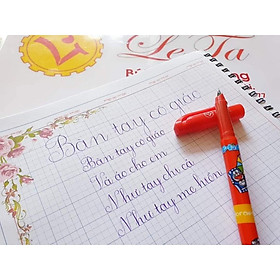 Lê Ta
Bàn tay cô giáo
Bàn tay cô giáo
Vá áo cho em
Như tay chị cả
Như tay mẹ hiền